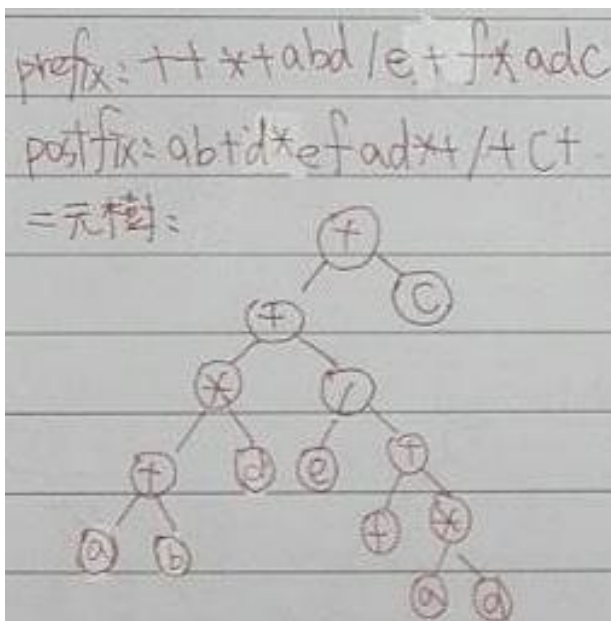 prefix: ++*+abd/e+f*adc
postfix: ab+d*efad*+/+c+
二元樹:
+
+ c
* /
+ d e +
a b f *
a d